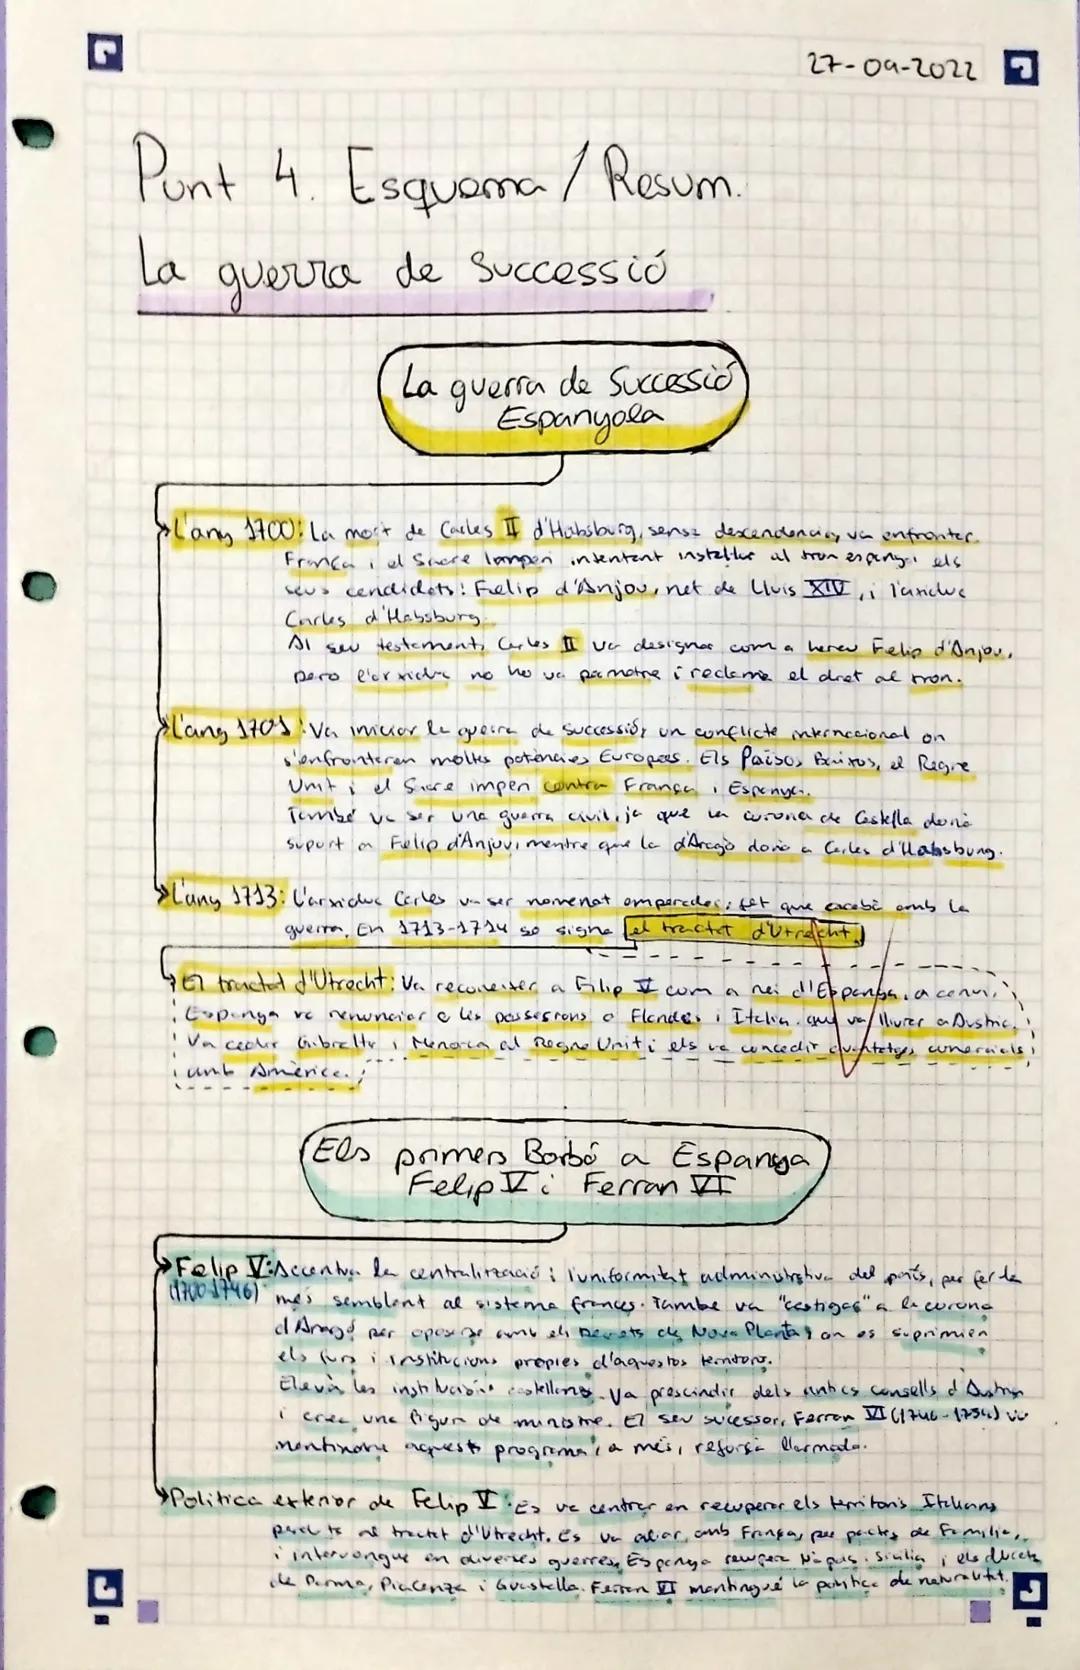 27-09-2022
Punt 4. Esquema / Resum.
La guerra de Successió
La guerra de Successió
Espanyola
L'any 1700: La mort de Carles II d'Habsburg, sense descendencia, va enfrontar
França i el Sacre Imperi intentant instal·lar al tron espanyol els
seus candidats: Felip d'Anjou, net de Lluis XIV, i l'arxiduc
Carles d'Habsburg.
Al seu testament, Carles II va designar com a hereu Felip d'Anjou,
pero l'arxiduc no ho va permetre i reclamà el dret al tron.
L'any 1701: Va iniciar la guerra de successió, un conflicte internacional on
s'enfrontaren moltes potències Europees. Els Països Baixos, el Regne
Unit i el Sacre imperi contra França i Espanya.
També va ser una guerra civil, ja que la corona de Castella donà
suport a Felip d'Anjou, mentre que la d'Aragó donà a Carles d'Habsburg.
L'any 1713: L'arxiduc Carles va ser nomenat emperador, fet que acabà amb la
guerra. En 1713-1714 se signa el tractat d'Utrecht.
El tractat d'Utrecht: Va reconeixer a Filip V com a rei d'Espanya, a canvi,
Espanya va renunciar a les possesions a Flandes i Itàlia, que va lliurar a Austria.
Va cedir Gibraltar i Menorca al Regne Unit i els va concedir avantatges comercials
amb Amèrica.
Els primers Borbó a Espanya
Felip V i Ferran VI
Felip V: Accentua la centralització i l'uniformitat administrativa del país, per fer-la
(1700-1746) més semblant al sistema frances. Tambe va "castigar" a la corona
d'Aragó per oposar-se amb els Decrets de Nova Planta, on es suprimien
els furs i institucions propies d'aquestos territoris.
Elevà les institucions castellanes. Va prescindir dels antics consells d'Austria
i crea una figura de ministre. El seu sucessor, Ferran VI (1746-) va
mantindre aquests programa i a més, reforçà l'armada.
Politica exterior de Felip V: Es va centrar en recuperar els territoris Italians
perduts al tractat d'Utrecht. Es va aliar amb França, per pactes de Familia,
i intervongue en diverses guerres. Espanya recupera Nàpols, Sicilia i els ducats
de Parma, Piacenza i Guastella. Ferran VI mantingué la politica de